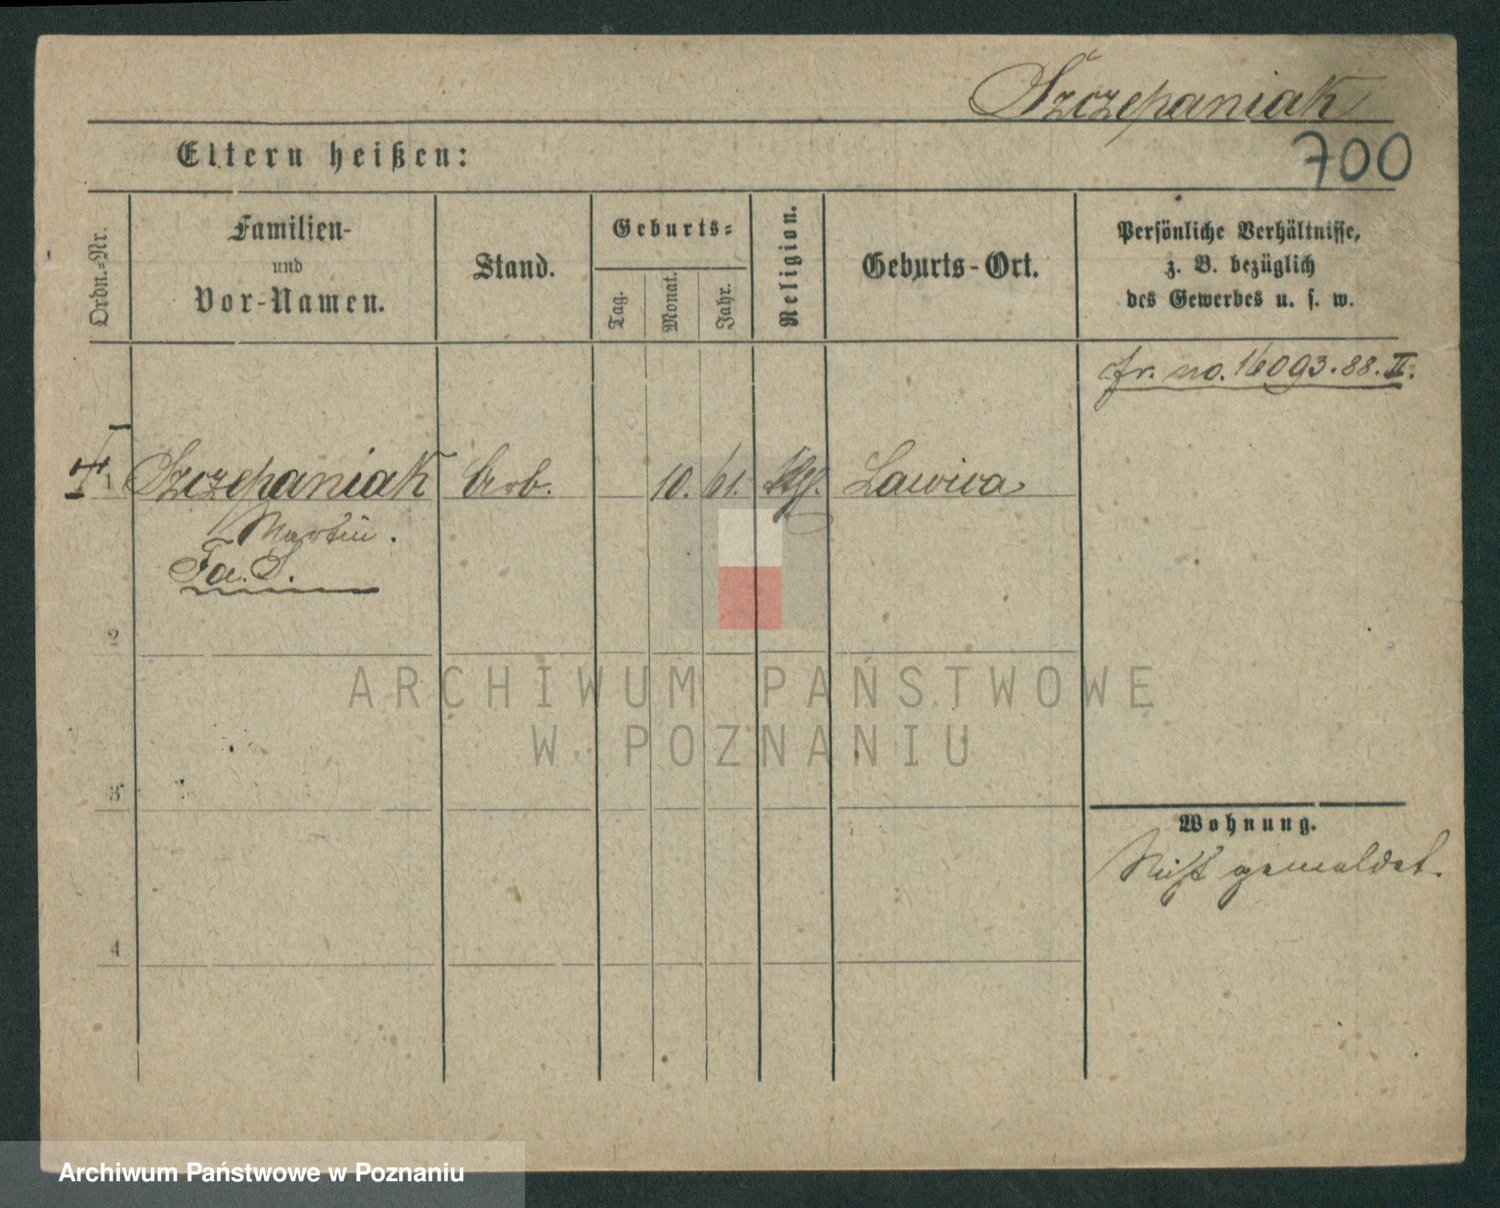 Szczepaniak
700
Eltern heißen:
Ordn.-Nr.
Familien-
und
Vor-Namen.
Stand.
Geburts-
Tag.
Monat.
Jahr.
Religion.
Geburts-Ort.
Persönliche Verhältnisse,
z. B. bezüglich
des Gewerbes u. s. w.
cfr. no. 16093.88.II.
1 Szczepaniak Arb. 10. 61. Lawica
Martin.
Fa. S.
2
3
4
Wohnung.
Nicht gemeldet.
ARCHIWUM PAŃSTWOWE
W POZNANIU
Archiwum Państwowe w Poznaniu